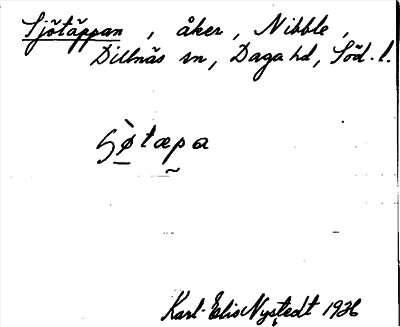 Sjötäppan, åker, Nibble,
Dillnäs sn, Daga hd, Söd. l.
Karl-Elis Nystedt 1926